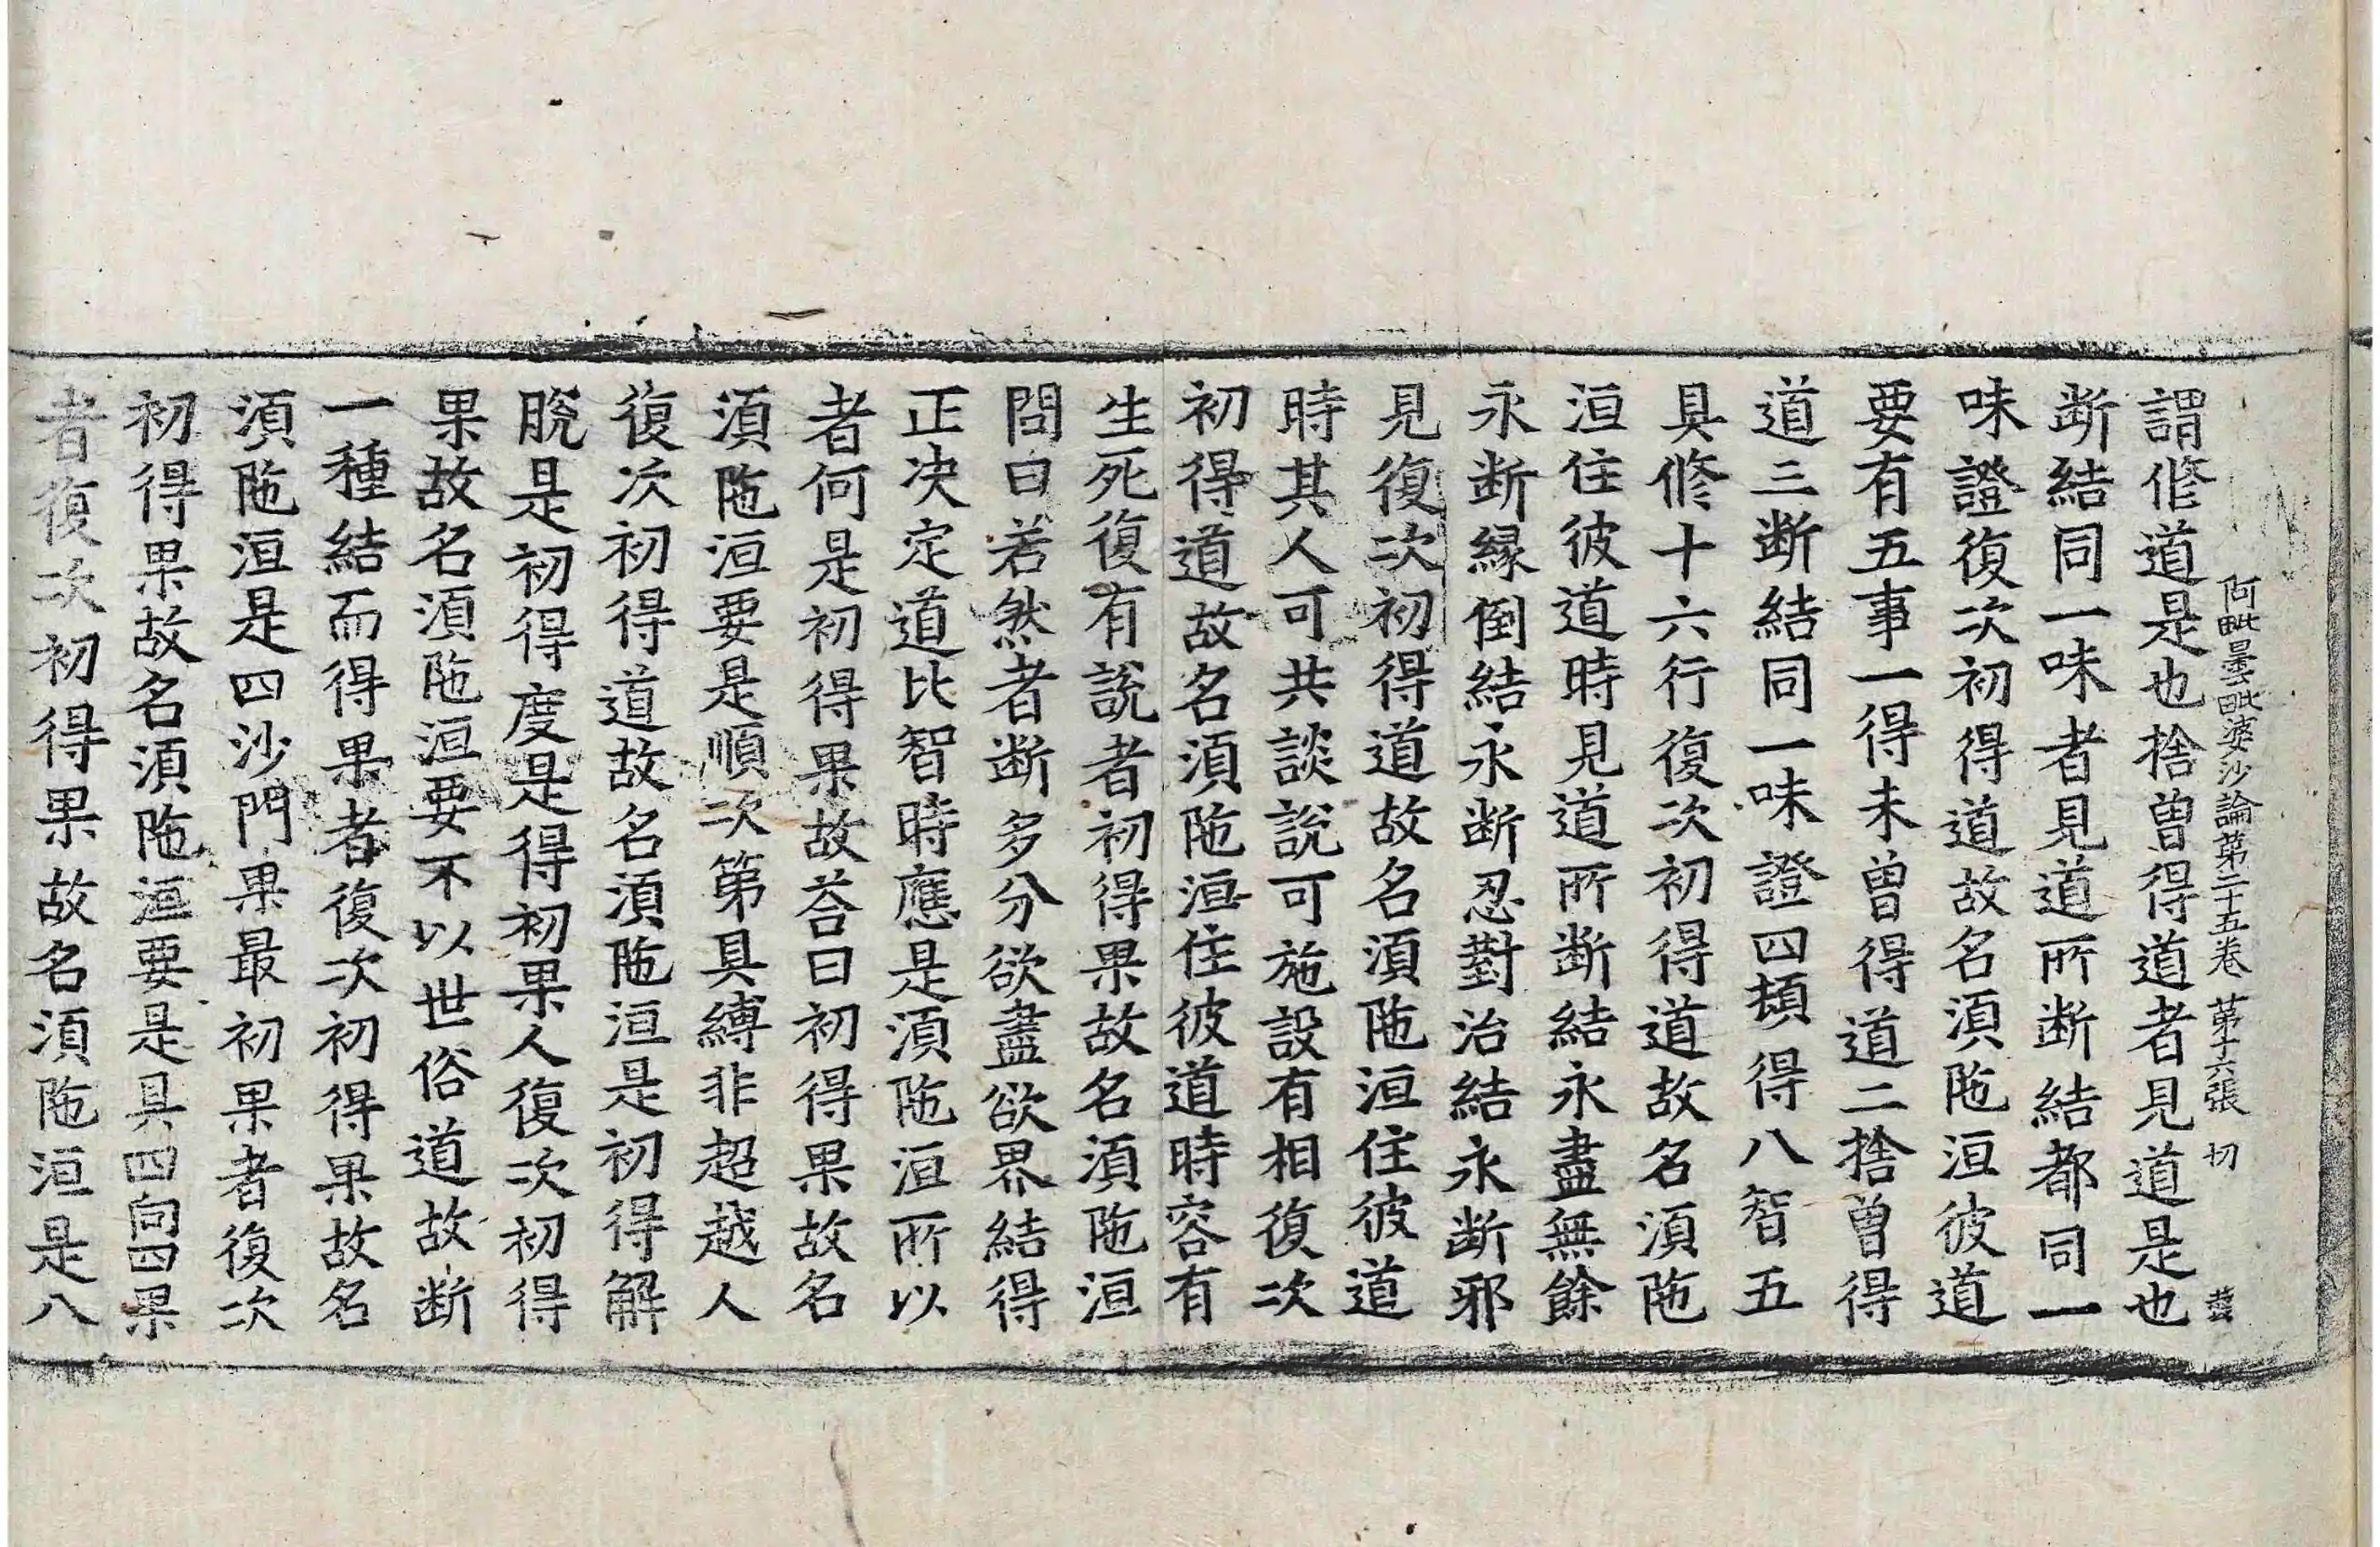 阿毗曇毗婆沙論第二十五卷 第十六張 切
謂修道是也捨曾得道者見道是也
斷結同一味者見道所斷結都同一
味證復次初得道故名湏陁洹彼道
要有五事一得未曾得道二捨曾得
道三断結同一味證四頓得八智五
具修十六行復次初得道故名湏陁
洹住彼道時見道所断結永盡無餘
永断縁倒結永断忍對治結永断邪
見復次初得道故名湏陁洹住彼道
時其人可共談說可施設有相復次
初得道故名湏陁洹住彼道時容有
生死復有說者初得果故名湏陁洹
問曰若然者断多分欲盡欲界結得
正决定道比智時應是湏陁洹所以
者何是初得果故荅曰初得果故名
湏陁洹要是順次第具縛非超越人
復次初得道故名湏陁洹是初得解
脫是初得度是得初果人復次初得
果故名湏陁洹要不以世俗道故断
一種結而得果者復次初得果故名
湏陁洹是四沙門果最初果者復次
初得果故名湏陁洹要是具四向四果
者復次初得果故名湏陁洹是八